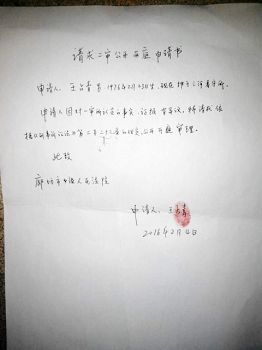 请求二审公开开庭申请书
申请人：王占青 男 1976年2月 生，现在押于三河看守所
申请人因对一审所认定的事实、证据 有异议，特请求依
据《刑事诉讼法》第二百二十三条的规定，公开开庭审理。
此致
廊坊市中级人民法院
申请人：王占青
2016年2月4日